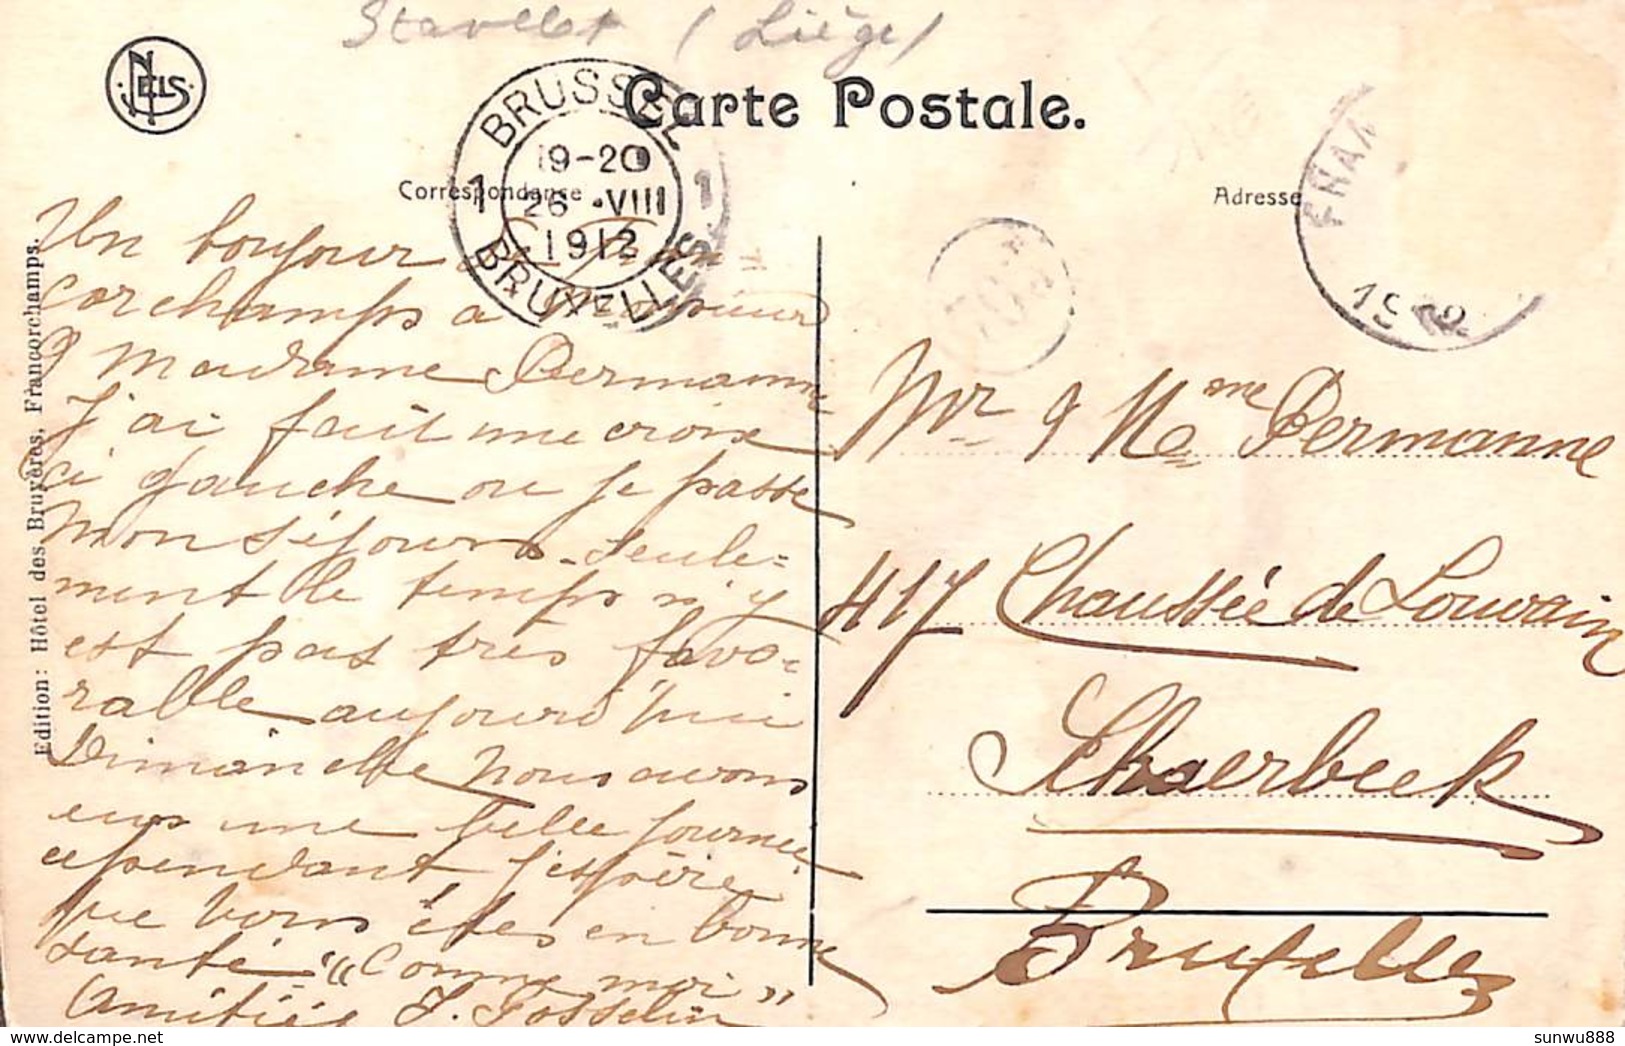 Stavelot (Liège)
NELS
Carte Postale.
BRUSSEL
19-20
1 26 VIII 1
1912
BRUXELLES
Correspondance
Adresse
1912
Edition: Hôtel des Bruyères, Francorchamps.
Un bonjour de Fran
corchamps a Monsieur
& Madame Permanne
J'ai fait une croix
ci gauche ou je passe
mon séjour. Seule=
ment le temps n'y
est pas très favo=
rable aujourd'hui
Dimanche nous avons
eus une belle journée
cependant j'espère
que vous êtes en bonne
santé "Comme moi"
Amitiés J. Josselin
Mr & Mme Permanne
417 Chaussée de Louvain
Schaerbeek
Bruxelles
sunwu888